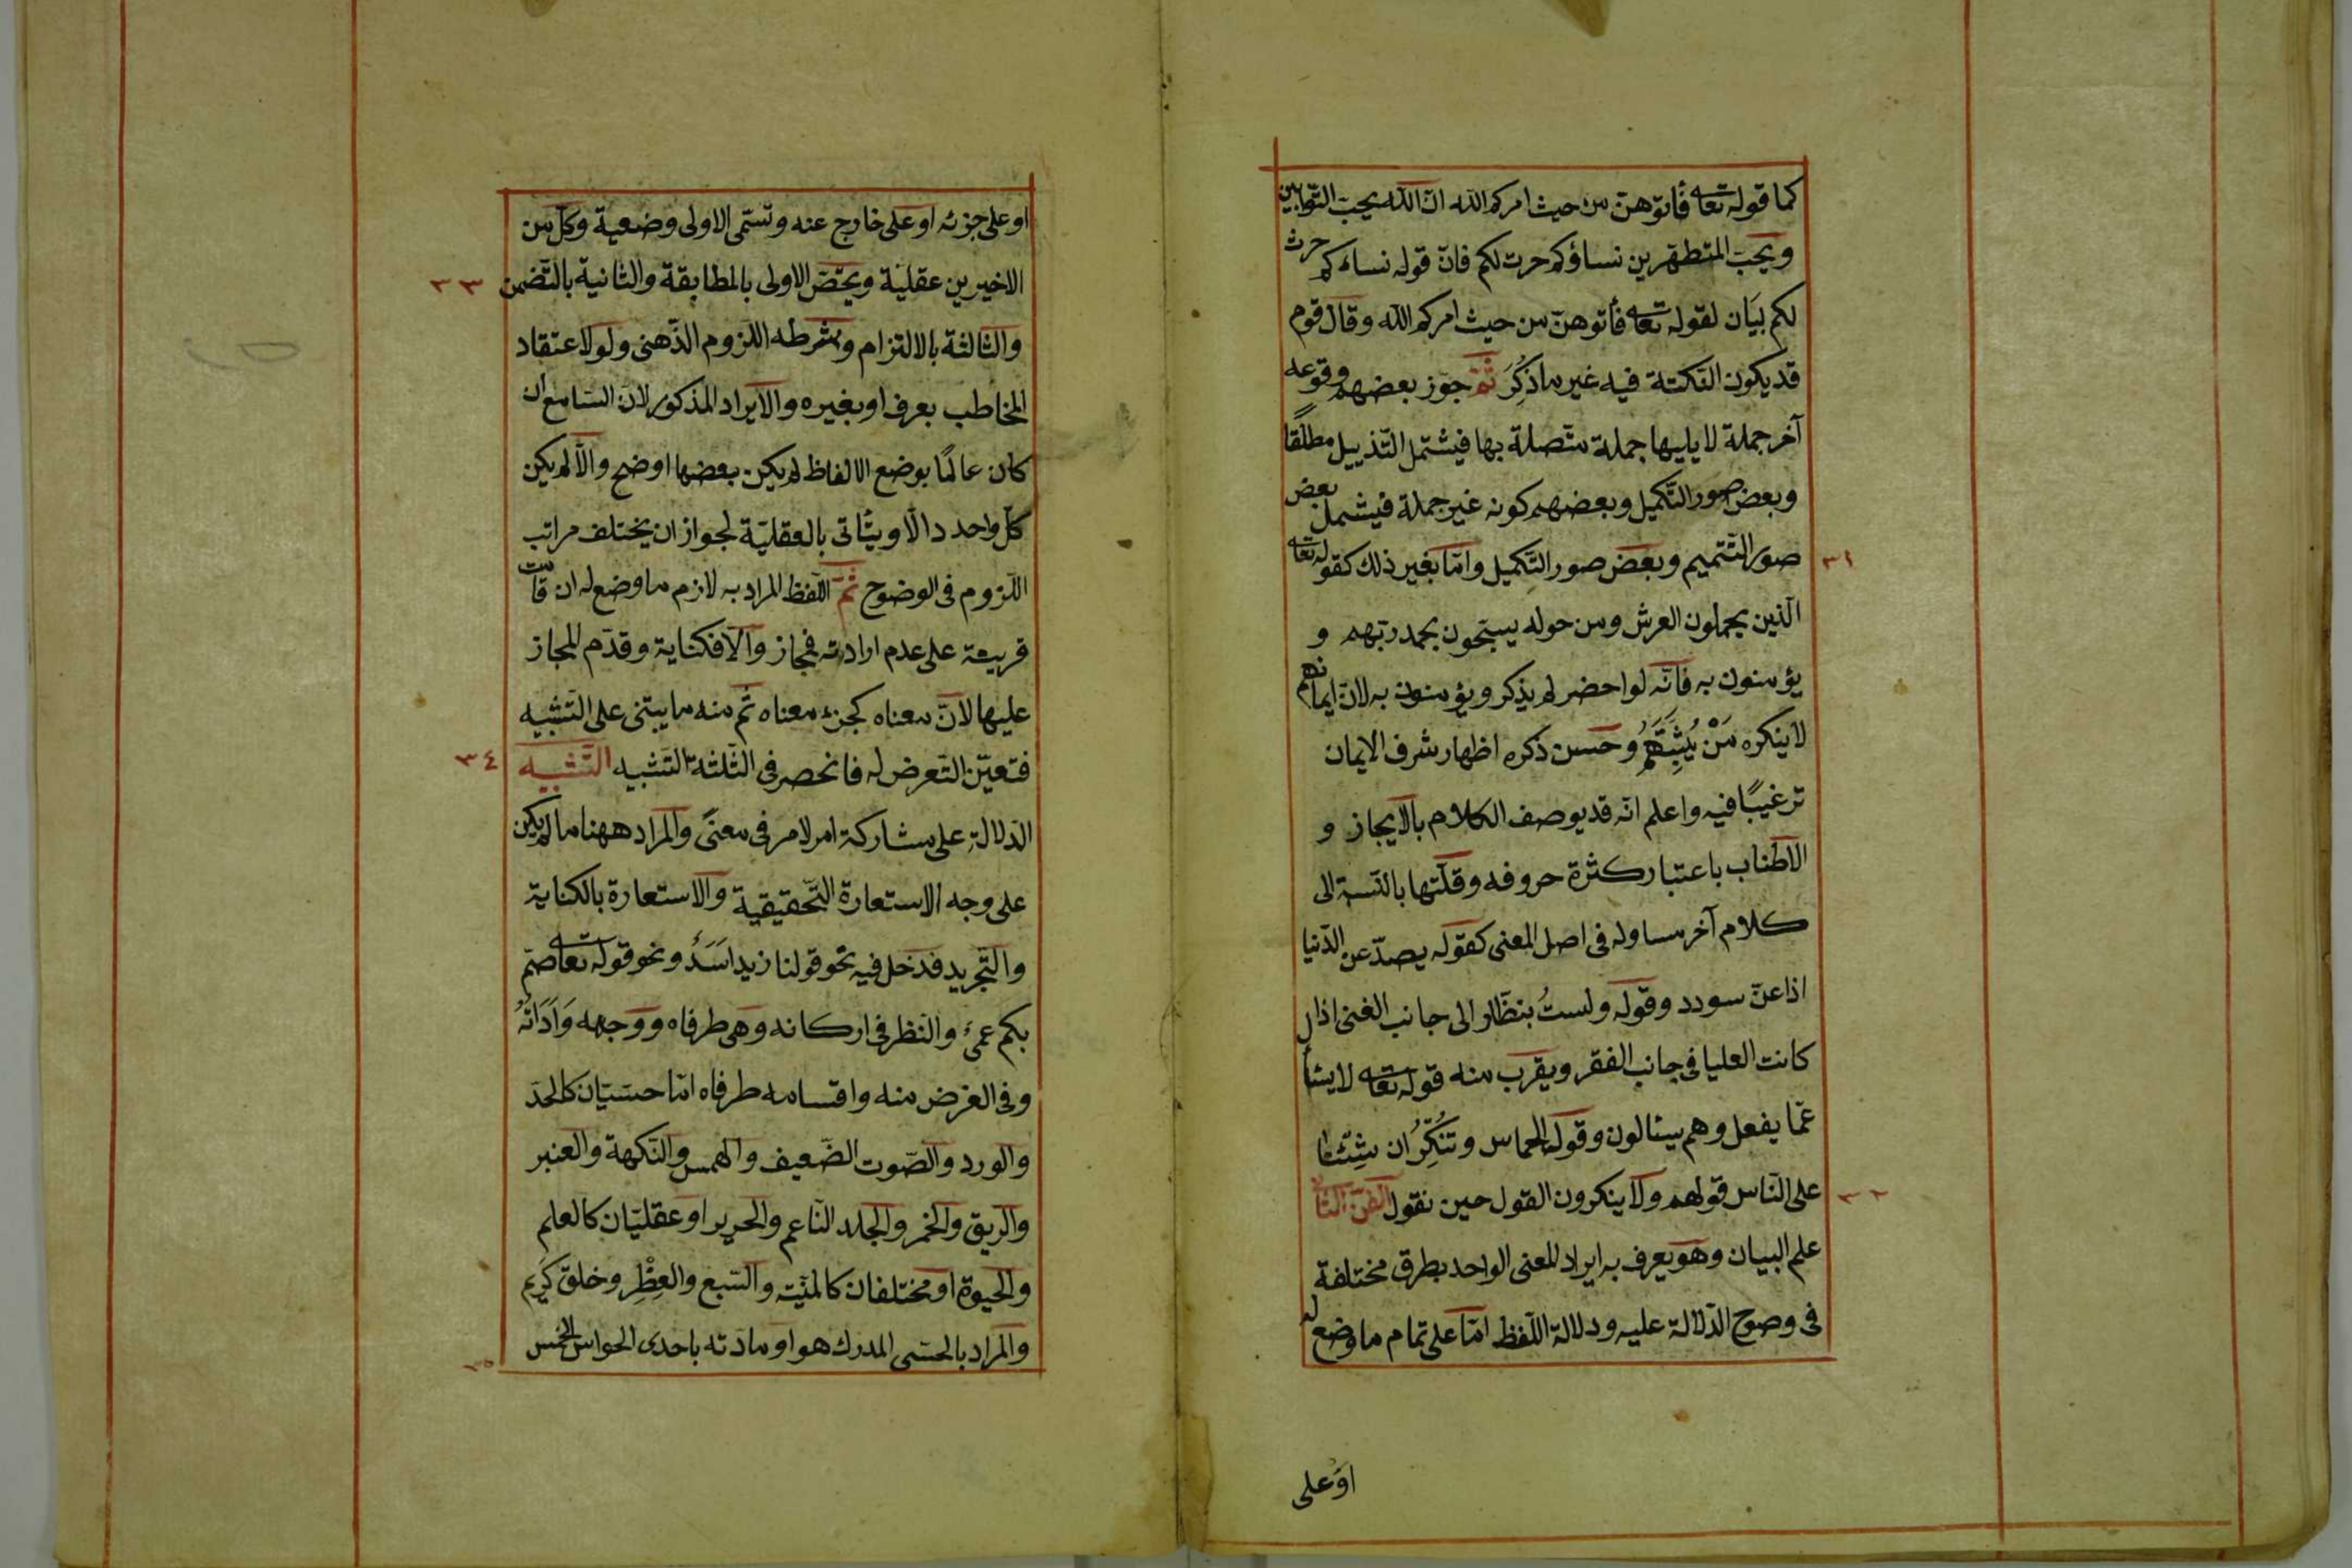 كما قوله تعا فأتوهنّ من حيث امركم الله انّ الله يحبّ التّوابين
ويحبّ المتطهّرين نساؤكم حرث لكم فانّ قوله نساؤكم حرث
لكم بيان لقوله تعا فأتوهنّ من حيث امركم الله وقال قوم
قد يكون النّكتة فيه غير ما ذُكِرَ ثمّ جوّز بعضهم وقوعه
آخر جملة لا يليها جملة متّصلة بها فيشتمل التّذييل مطلقًا
وبعض صور التّكميل وبعضهم كونه غير جملة فيشمل بعض
صور التّتميم وبعض صور التّكميل وامّا بغير ذلك كقوله تعا
٣١
الّذين يحملون العرش ومن حوله يسبّحون بحمد ربّهم و
يؤمنون به فانّه لو احضر لم يذكر ويؤمنون به لانّ ايمانهم
لا ينكره مَنْ يُثبِتُهُم وحسن ذكره اظهار شرف الايمان
ترغيبًا فيه واعلم انّه قد يوصف الكلام بالايجاز و
الاطناب باعتبار كثرة حروفه وقلّتها بالنّسبة الى
كلام آخر مساو له فى اصل المعنى كقوله يصدّ عن الدّنيا
اذا عنّ سودد وقوله ولستُ بنظّار الى جانب الغنى اذا
كانت العليا فى جانب الفقر ويقرب منه قوله تعا لا يسأل
عمّا يفعل وهم يسئالون وقوله الحماس وتُنكِرُ ان شِئنا
على النّاس قولهم ولا ينكرون القول حين نقول الفنّ الثّانى
٣٢
علم البيان وهو يعرف به ايراد المعنى الواحد بطرق مختلفة
فى وضوح الدّلالة عليه ودلالة اللّفظ امّا على تمام ما وضع له
او على
او على جزئه او على خارج عنه وتسمّى الاولى وضعية وكلّ من
الاخيرين عقليّة ويختصّ الاولى بالمطابقة والثانية بالتّضمن
٣٣
والثالثة بالالتزام وشرطه اللّزوم الذّهنى ولو لاعتقاد
المخاطب بعرف او بغيره والايراد المذكور لانّ السّامع ان
كان عالمًا بوضع الالفاظ لم يكن بعضها اوضح والّا لم يكن
كلّ واحد دالّا ويتأتى بالعقليّة لجواز ان يختلف مراتب
اللّزوم فى الوضوح ثمّ اللّفظ المراد به لازم ما وضع له ان قامت
قرينة على عدم ارادته فمجاز والّا فكناية وقدّم المجاز
عليها لانّ معناه كجزء معناه ثمّ منه ما يبتنى على التّشبيه
فتعيّن التّعرض له فانحصر فى الثّلثة التّشبيه التّشبيه
٣٤
الدّلالة على مشاركة امر لامر فى معنًى والمراد ههنا ما لم يكن
على وجه الاستعارة التّحقيقية والاستعارة بالكناية
والتّجريد فدخل فيه نحو قولنا زيد اَسَدٌ ونحو قوله تعا صمّ
بكم عمىٌ والنّظر فى اركانه وهى طرفاه ووجهه وَاَدَاتُهُ
وفى الغرض منه واقسامه طرفاه امّا حسّيّان كالخدّ
والورد والصّوت الضّعيف والهمس والنّكهة والعنبر
والرّيق والخمر والجلد النّاعم والحرير او عقليّان كالعلم
والحيوة او مختلفان كالمنيّة والسّبع والعِطْرِ وخلق كريم
والمراد بالحسّى المدرك هو او مادّته باحدى الحواس الخمس
٣٥